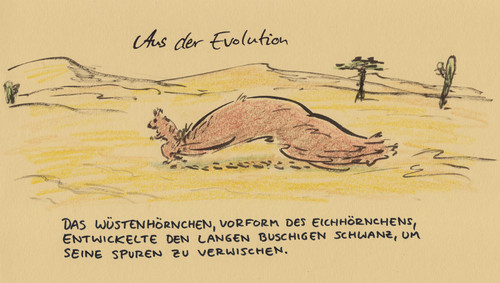 Aus der Evolution
DAS WÜSTENHÖRNCHEN, VORFORM DES EICHHÖRNCHENS,
ENTWICKELTE DEN LANGEN BUSCHIGEN SCHWANZ, UM
SEINE SPUREN ZU VERWISCHEN.